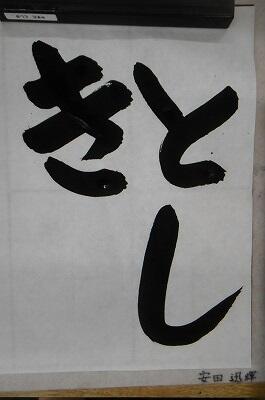 とし
き
安田 迅輝